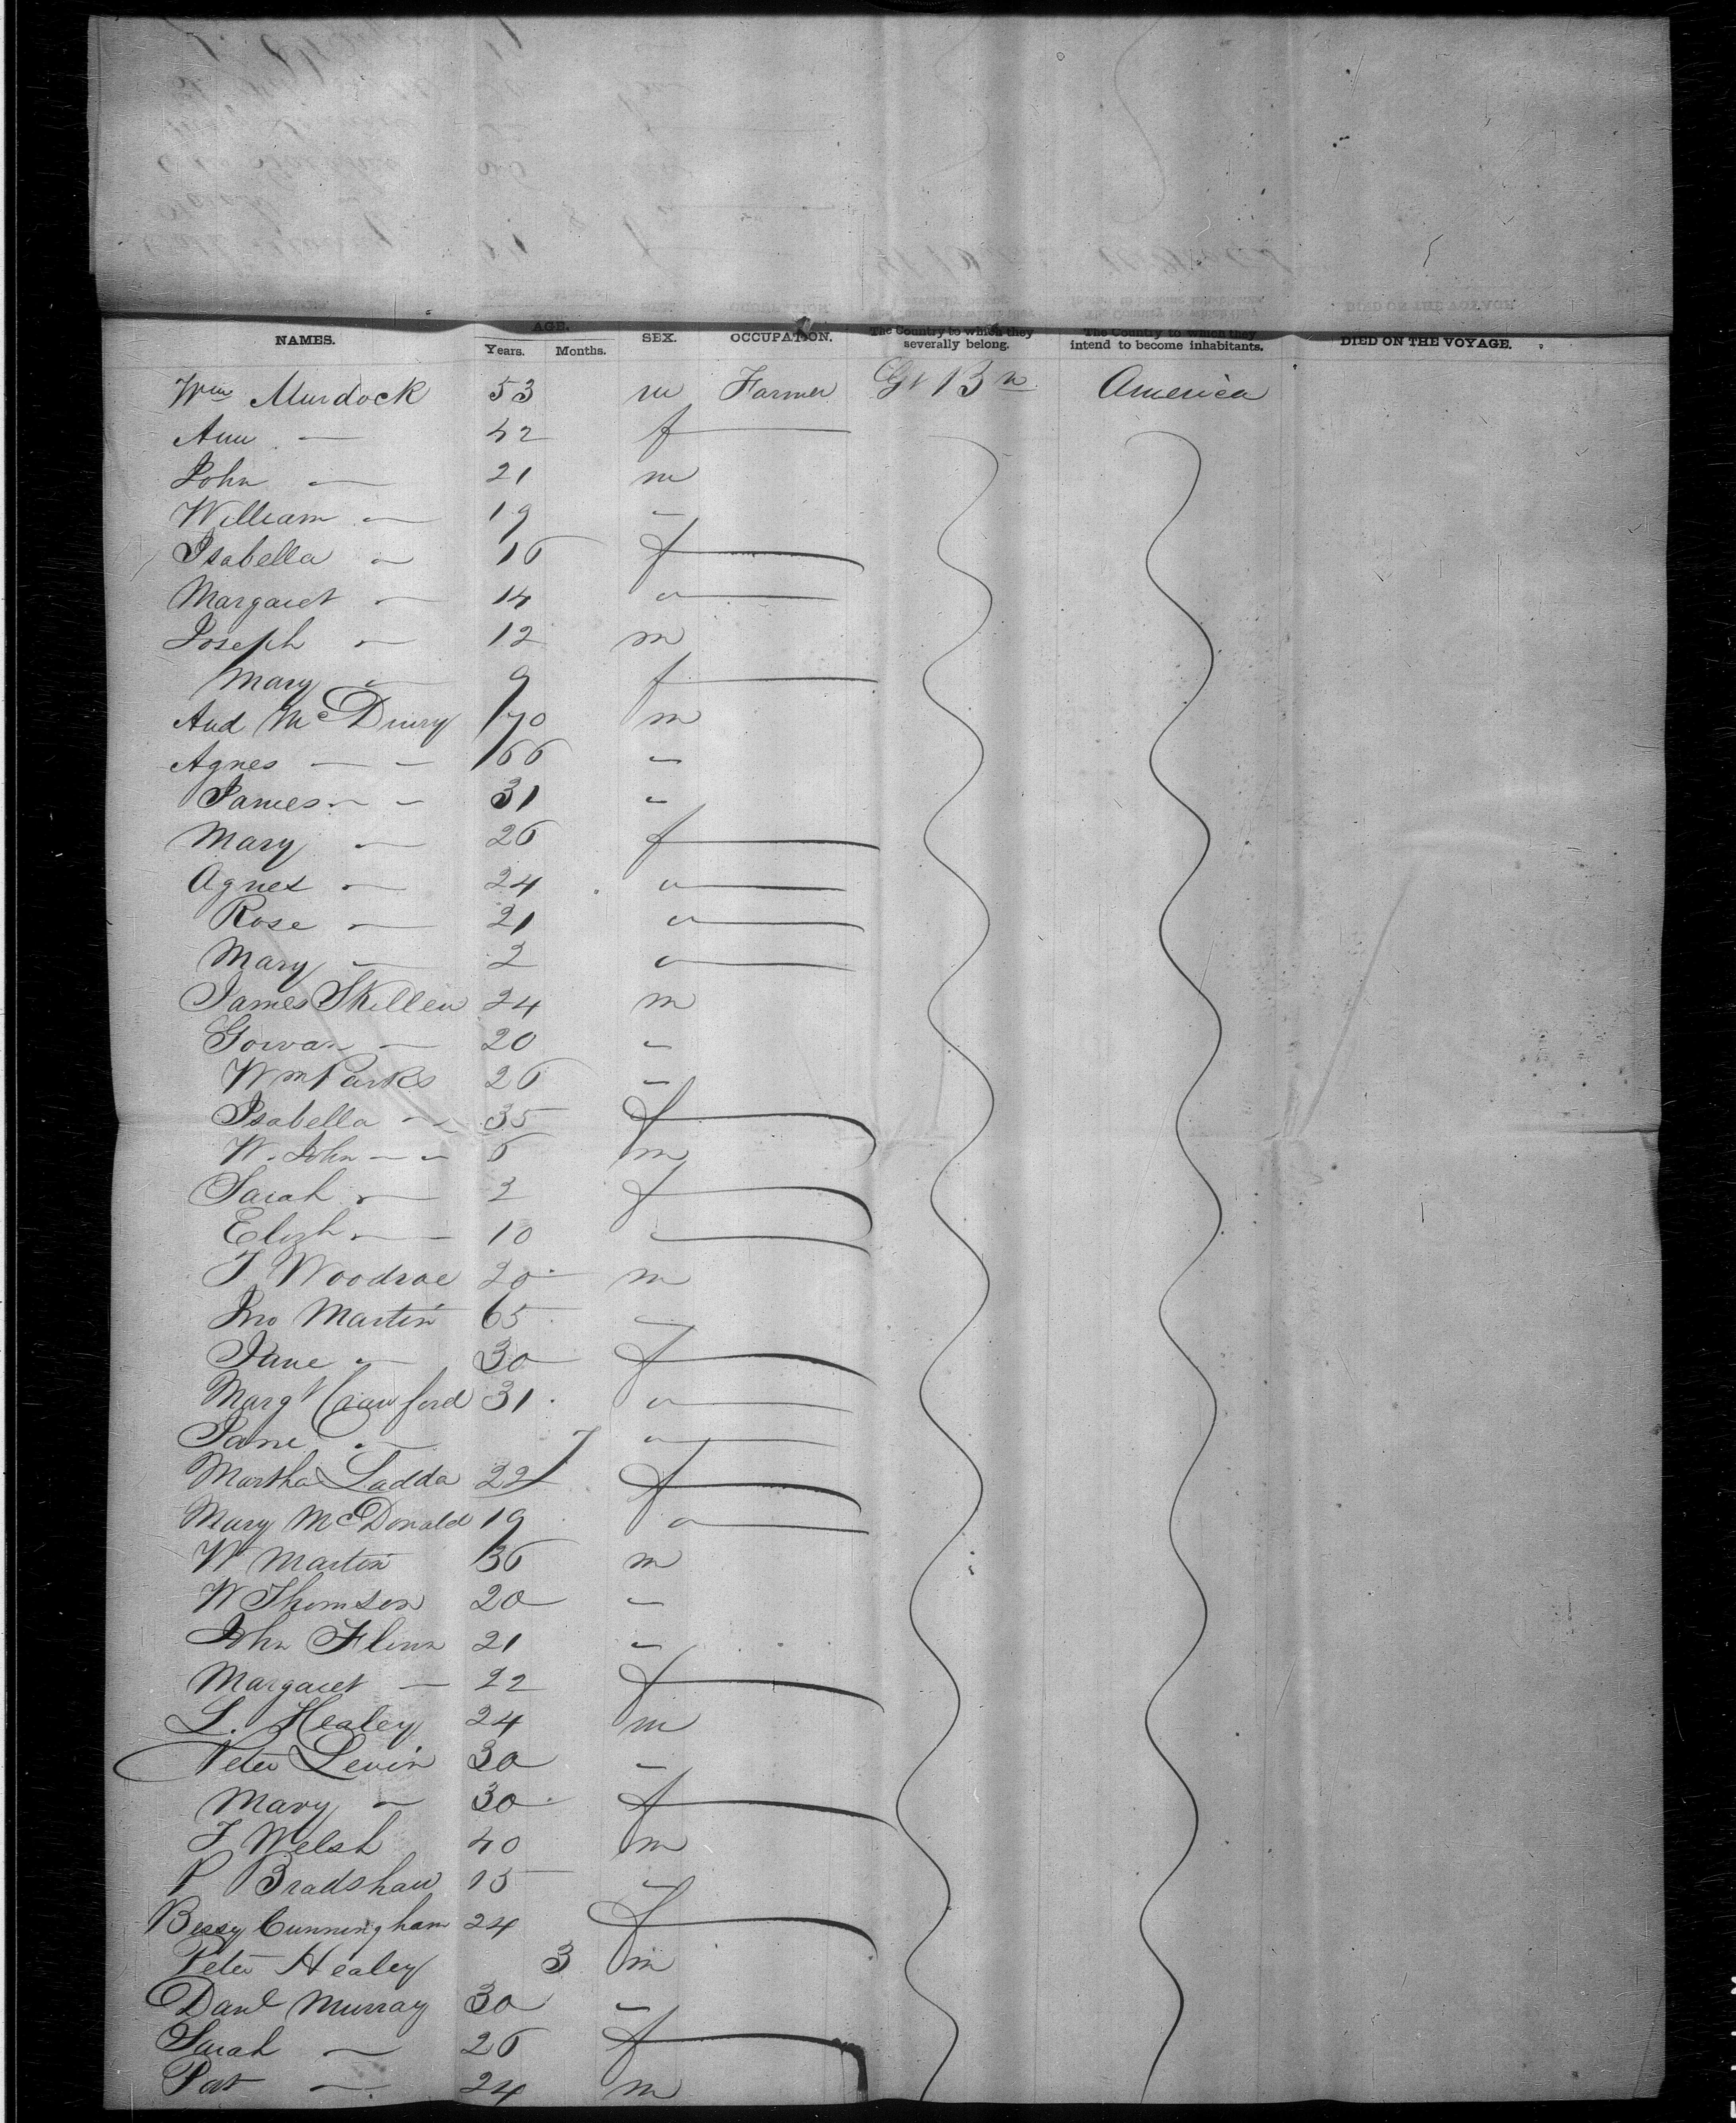 NAMES. AGE. Years. Months. SEX. OCCUPATION. The Country to which they severally belong. The Country to which they intend to become inhabitants. DIED ON THE VOYAGE.
Wm Murdock 53 m Farmer Gt Bn America
Ann — 42 f
John — 21 m
William — 19 —
Isabella — 16 f
Margaret — 14 "
Joseph — 12 m
Mary — 9 f
And McDrury 70 m
Agnes — — 66 —
James — — 31 —
Mary — 26 f
Agnes — 24 "
Rose — 21 "
Mary — 2 "
James Skillen 24 m
Gowan — 20 —
Wm Parks 26 —
Isabella — 35 f
W. John — — 6 m
Sarah — 2 f
Elizh — 10
J Woodroe 20 m
Jno Martin 65 —
Jane — 30 f
Margt Crawford 31 "
Jane — 7 "
Martha Ladda 22 f
Mary McDonald 19 "
W Martin 36 m
W Thomson 20 —
John Flinn 21 —
Margaret — 22 f
L. Healey 24 m
Peter Levin 30 —
Mary — 30 f
J Welsh 40 m
P Bradshaw 15 —
Bessy Cunningham 24 f
Peter Healey 3 m
Danl Murray 30 —
Sarah — 26 f
Pat — 24 m